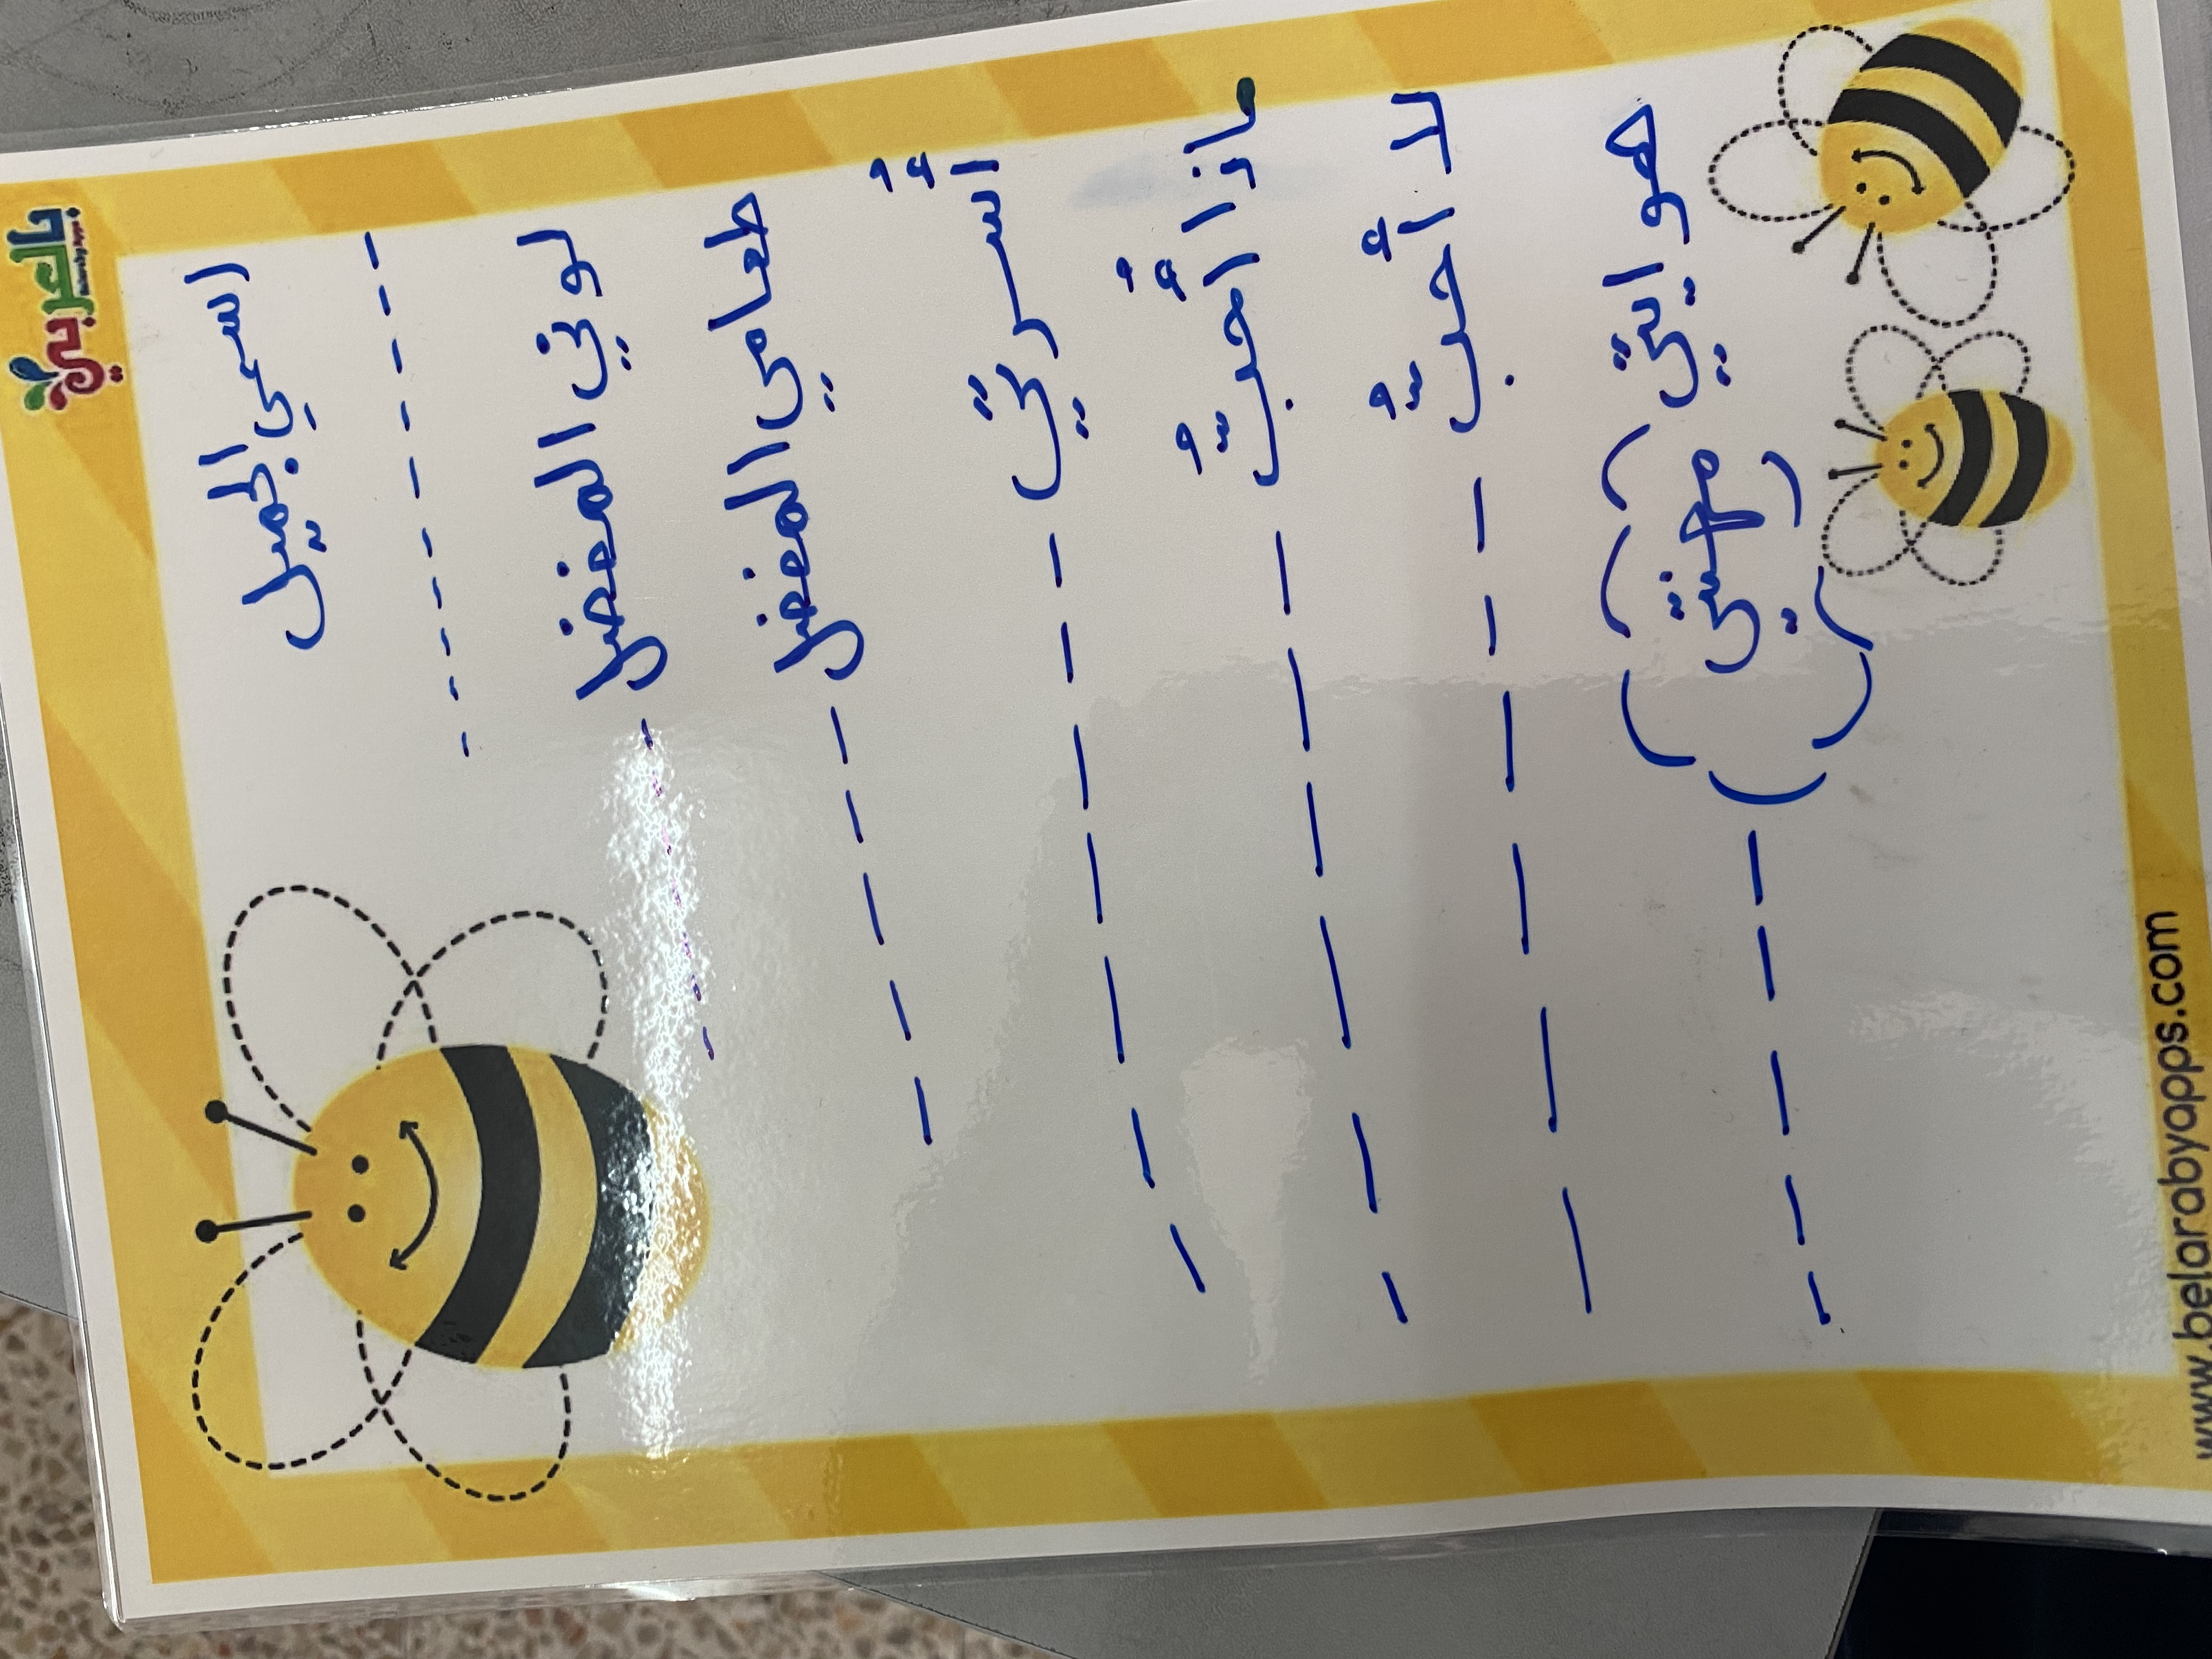 بالعربي
اسمي الجميل
لوني المفضل
طعامي المفضل
أُسرتي
ماذا أُحبُّ
لا أُحبُّ
هوايتي
مهنتي
www.belarabyapps.com